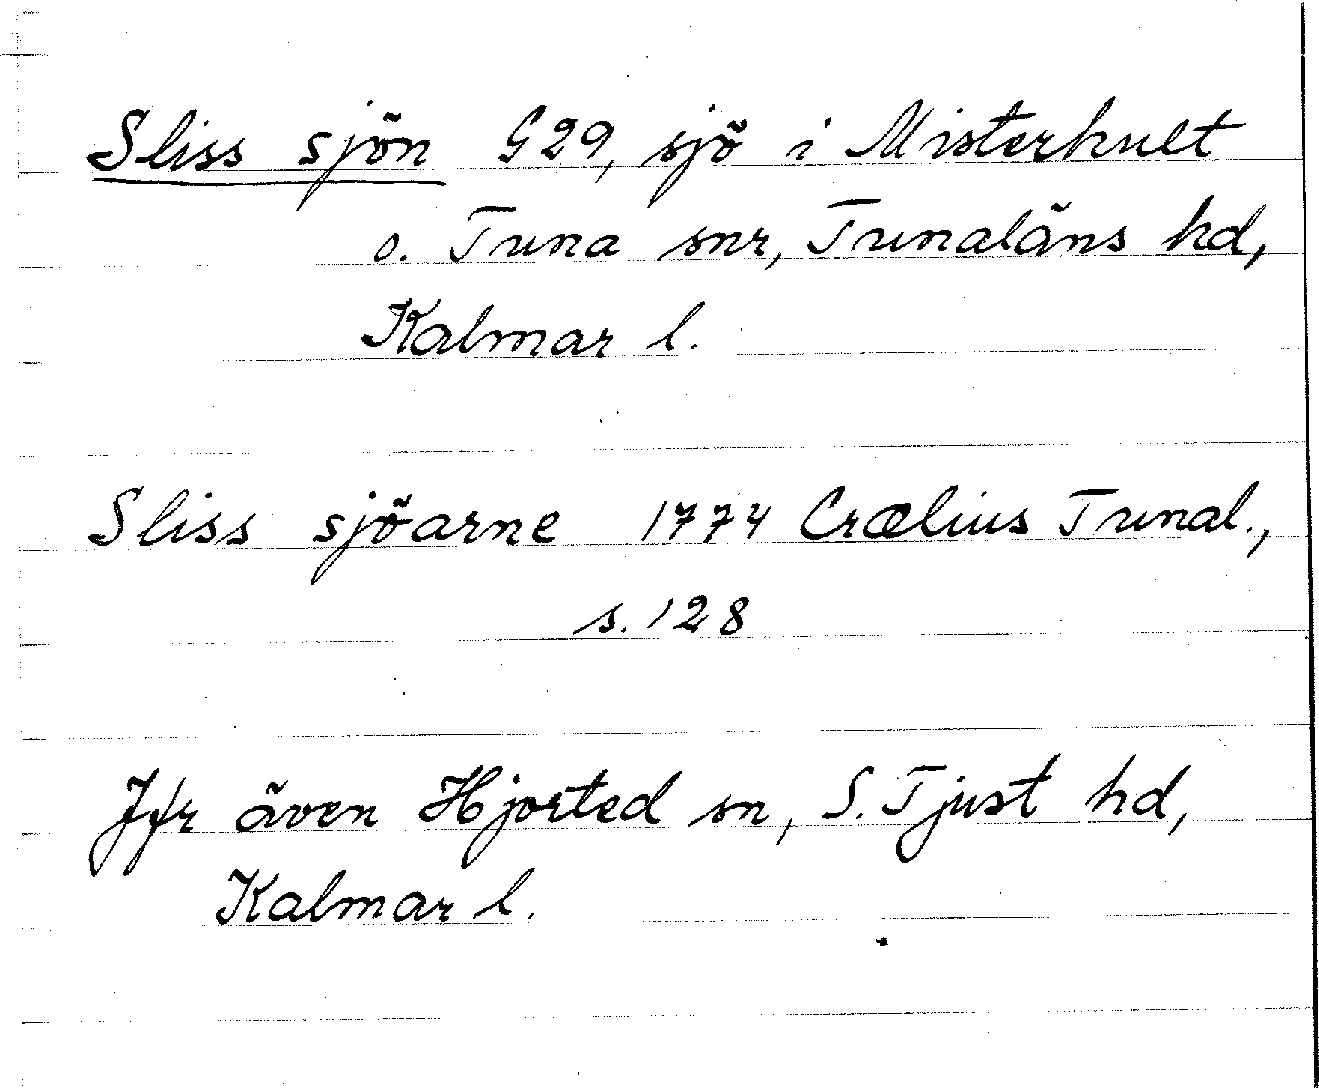 Sliss sjön G29, sjö i Misterhult
o. Tuna snr, Tunaläns hd,
Kalmar l.
Sliss sjöarne 1774 Crælius Tunal.,
s. 128
Jfr även Hjorted sn, S. Tjust hd,
Kalmar l.